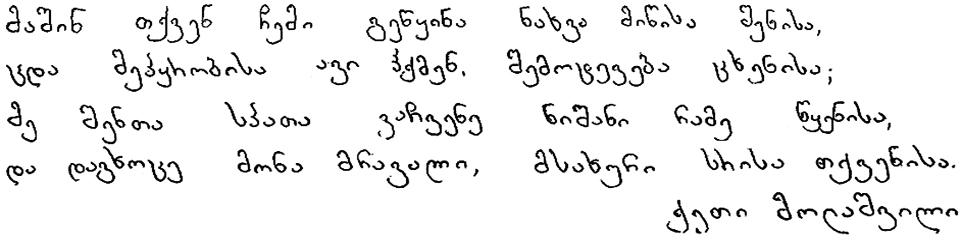 მაშინ თქვენ ჩემი გეწყინა ნახვა მიწისა შენისა,
ცდა შეპყრობისა ავი ჰქმენ, შემოტევება ცხენისა;
მე შენთა სპათა ვაჩვენე ნიშანი რამე წყენისა,
და დავხოცე მონა მრავალი, მსახური სრისა თქვენისა.
ქეთი